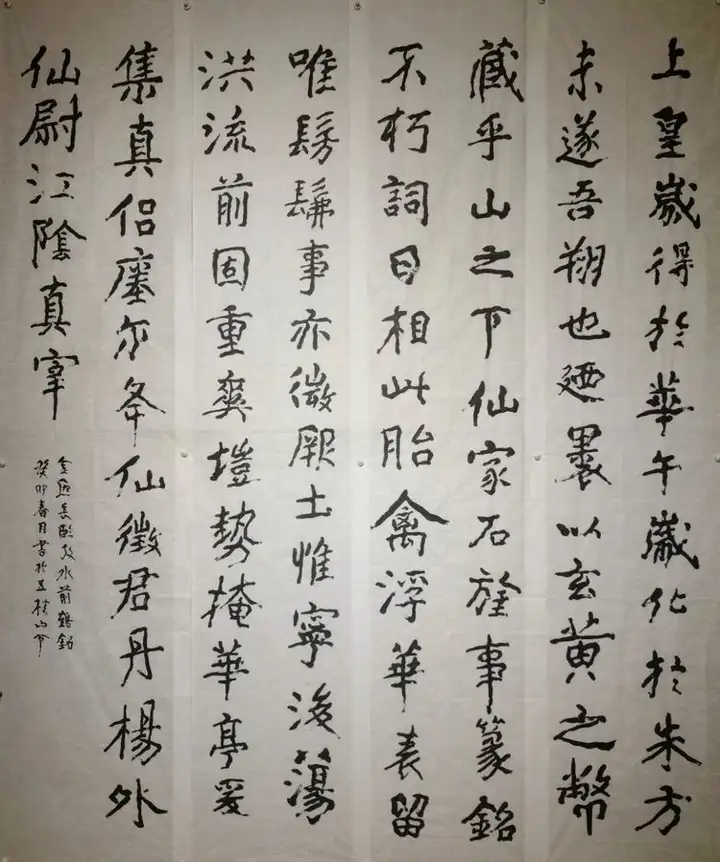 上皇歲得於華午歲化於朱方
未遂吾翔也迺裹以玄黃之幣
藏乎山之下仙家石旌事篆銘
不朽詞曰相此胎禽浮華表留
唯髣髴事亦微厥土惟寧後蕩
洪流前固重爽塏勢掩華亭爰
集真侶瘞尔条仙徵君丹楊外
仙尉江陰真宰
水前鶴銘
癸卯春月書於五桂山下